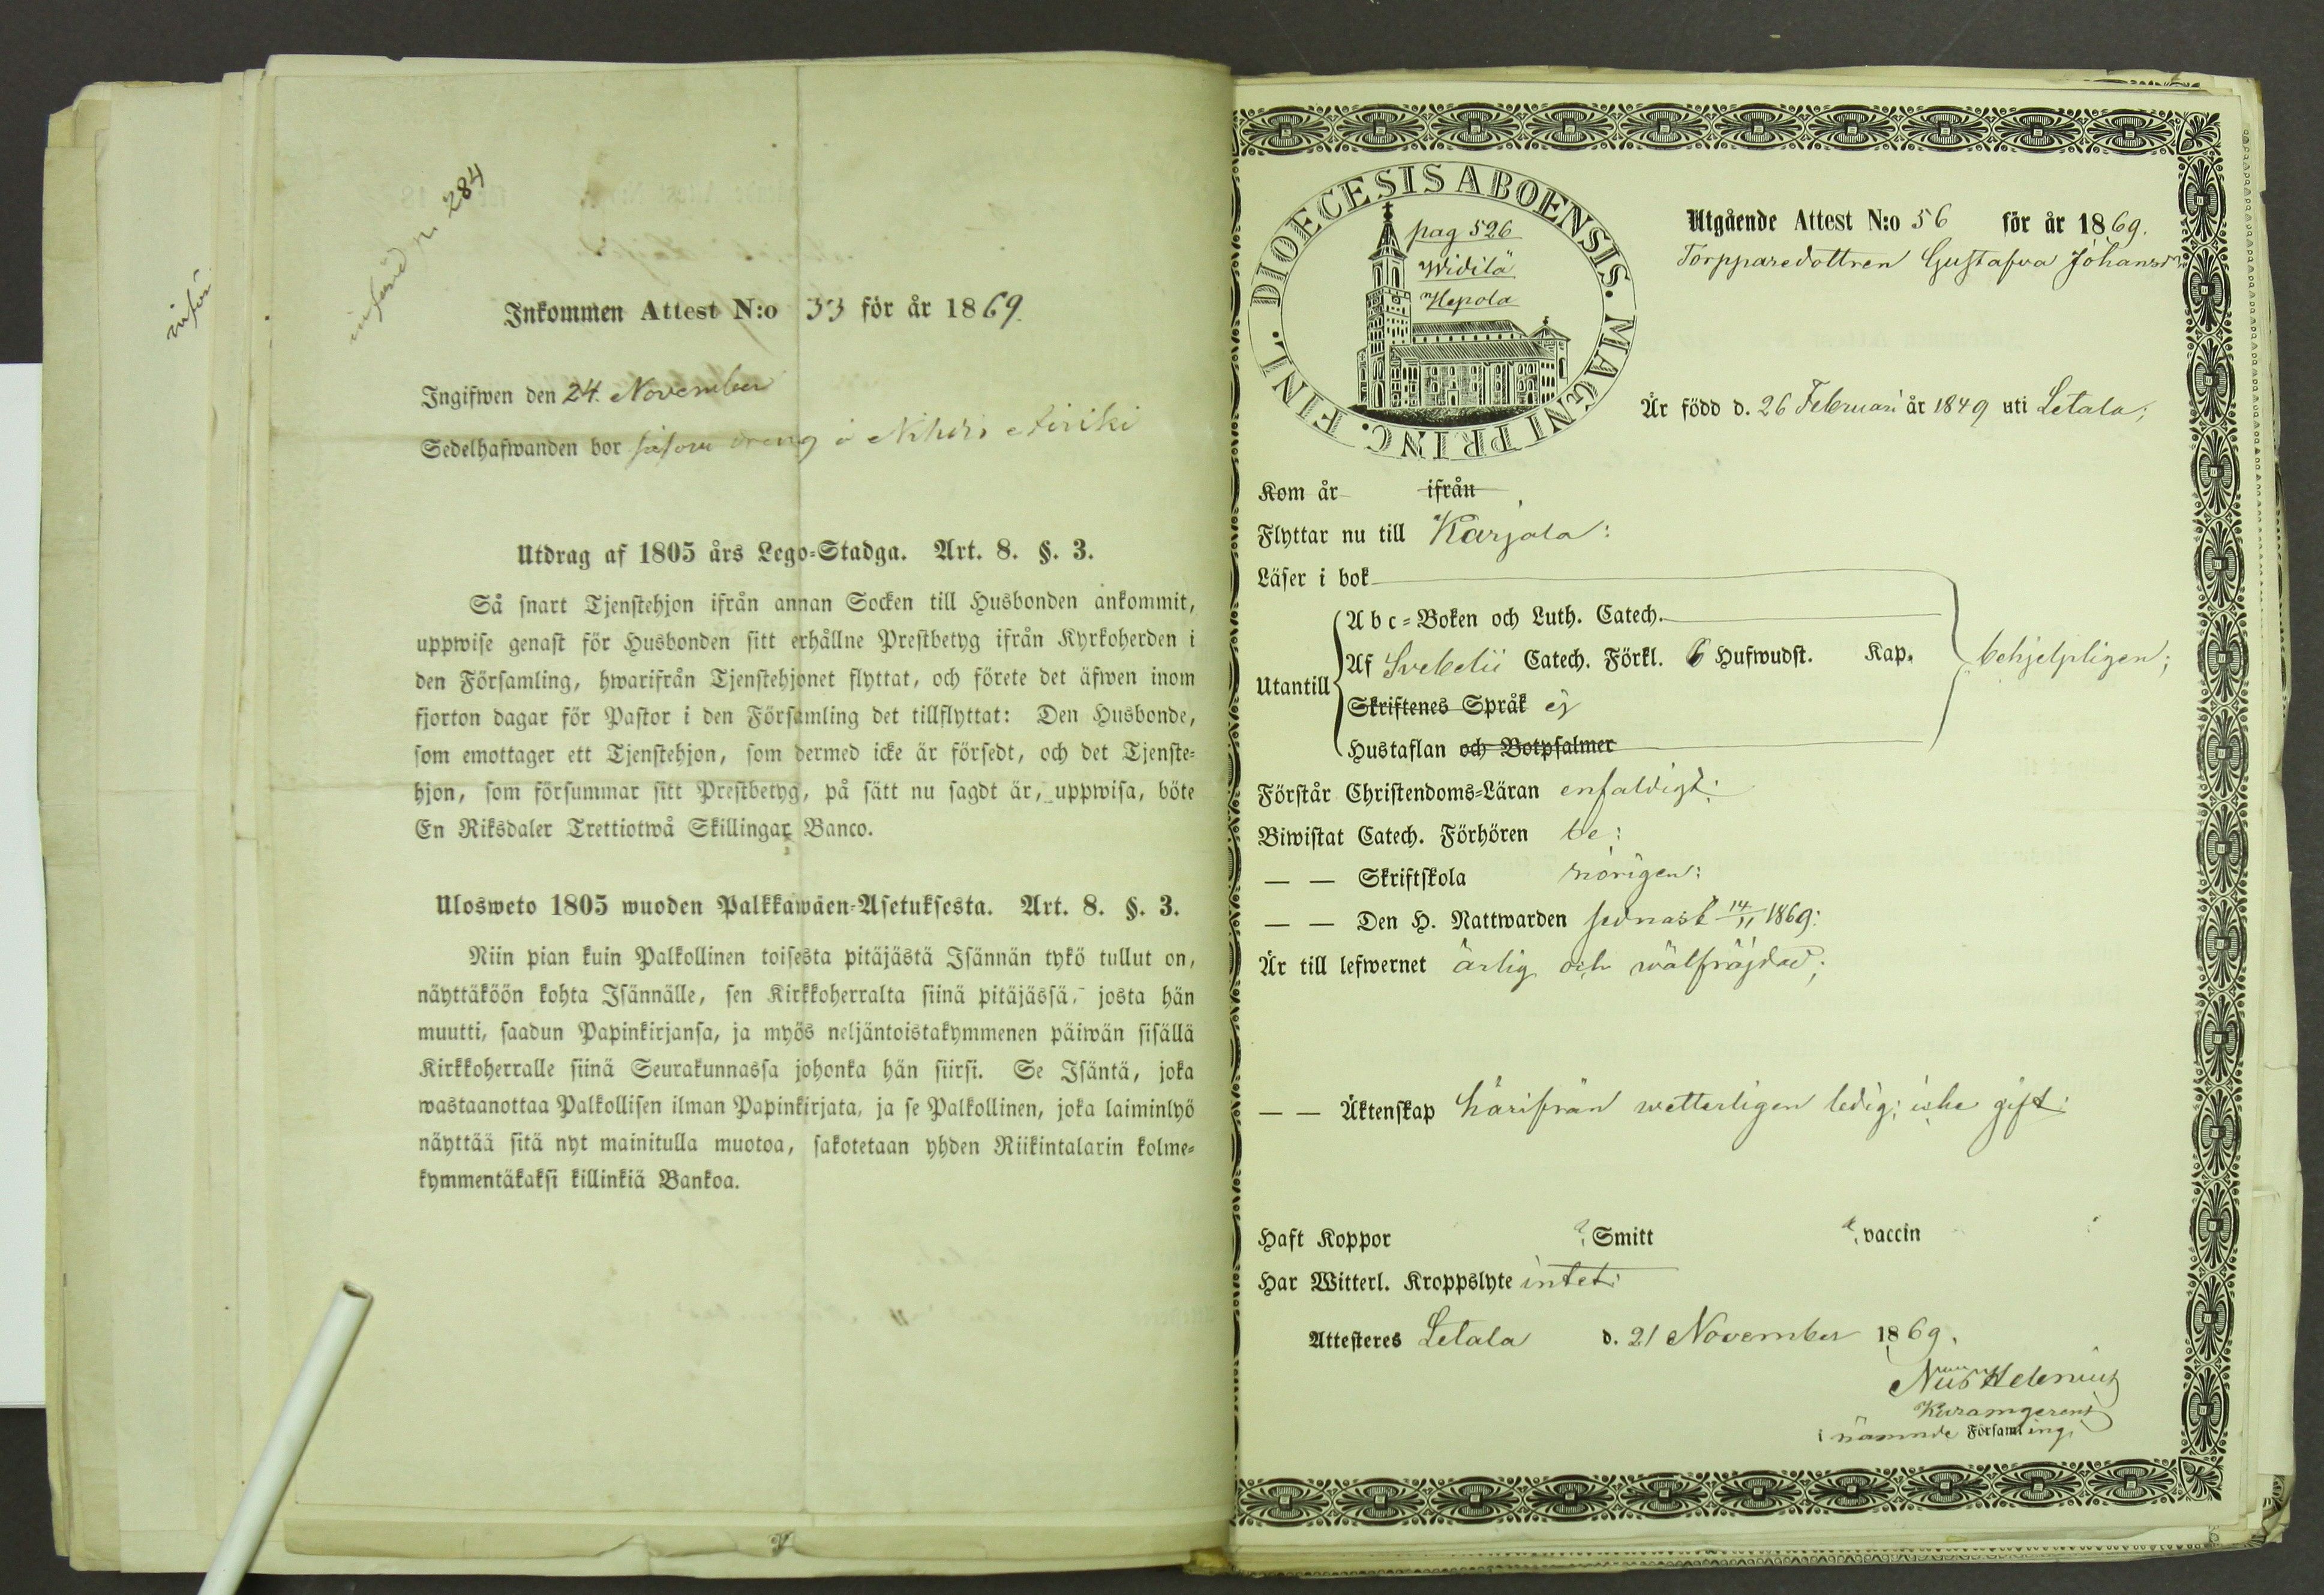 införd p. 284
inför
Inkommen Attest N:o 33 för år 1869.
Ingifwen den 24. November
Sedelhafwanden bor såsom dreng å
Utdrag af 1805 års Lego-Stadga. Art. 8. §. 3.
Så snart Tjenstehjon ifrån annan Socken till Husbonden ankommit,
uppwise genast för Husbonden sitt erhållne Prestbetyg ifrån Kyrkoherden i
den Församling, hwarifrån Tjenstehjonet flyttat, och förete det äfwen inom
fjorton dagar för Pastor i den Församling det tillflyttat: Den Husbonde,
som emottager ett Tjenstehjon, som dermed icke är försedt, och det Tjenste-
hjon, som försummar sitt Prestbetyg, på sätt nu sagdt är, uppwisa, böte
En Riksdaler Trettiotwå Skillingar Banco.
Ulosweto 1805 wuoden Palkkawäen-Asetuksesta. Art. 8. §. 3.
Niin pian kuin Palkollinen toisesta pitäjästä Isännän tykö tullut on,
näyttäköön kohta Isännälle, sen Kirkkoherralta siinä pitäjässä, josta hän
muutti, saadun Papinkirjansa, ja myös neljäntoistakymmenen päiwän sisällä
Kirkkoherralle siinä Seurakunnassa johonka hän siirsi. Se Isäntä, joka
wastaanottaa Palkollisen ilman Papinkirjata, ja se Palkollinen, joka laiminlyö
näyttää sitä nyt mainitulla muotoa, sakotetaan yhden Riikintalarin kolme-
kymmentäkaksi killinkiä Bankoa.
DIOECESIS ABOENSIS. MAGNI PRINC. FINL.
pag 526
Widilä
Hepola
Utgående Attest N:o 56 för år 1869.
Torpparedottren Gustafva Johansd:r
Är född d. 26 Februari år 1849 uti Letala;
Kom år ifrån
Flyttar nu till Karjala:
Läser i bok
Utantill
Abc-Boken och Luth. Catech.
Af Svebelii Catech. Förkl. 6 Hufwudst. Kap.
behjelpligen;
Skriftenes Språk ej
Hustaflan och Botpsalmer
Förstår Christendoms-Läran enfaldigt:
Biwistat Catech. Förhören be:
— — Skriftskola nörigen:
— — Den H. Nattwarden sednast 14/11 1869:
Är till lefwernet ärlig och wälfräjdad;
— — Äktenskap härifrån wetterligen ledig; icke gift:
Haft Koppor Smitt vaccin
Har Witterl. Kroppslyte intet:
Attesteres Letala d. 21 November 1869.
Helenius
i nämnde Församling.